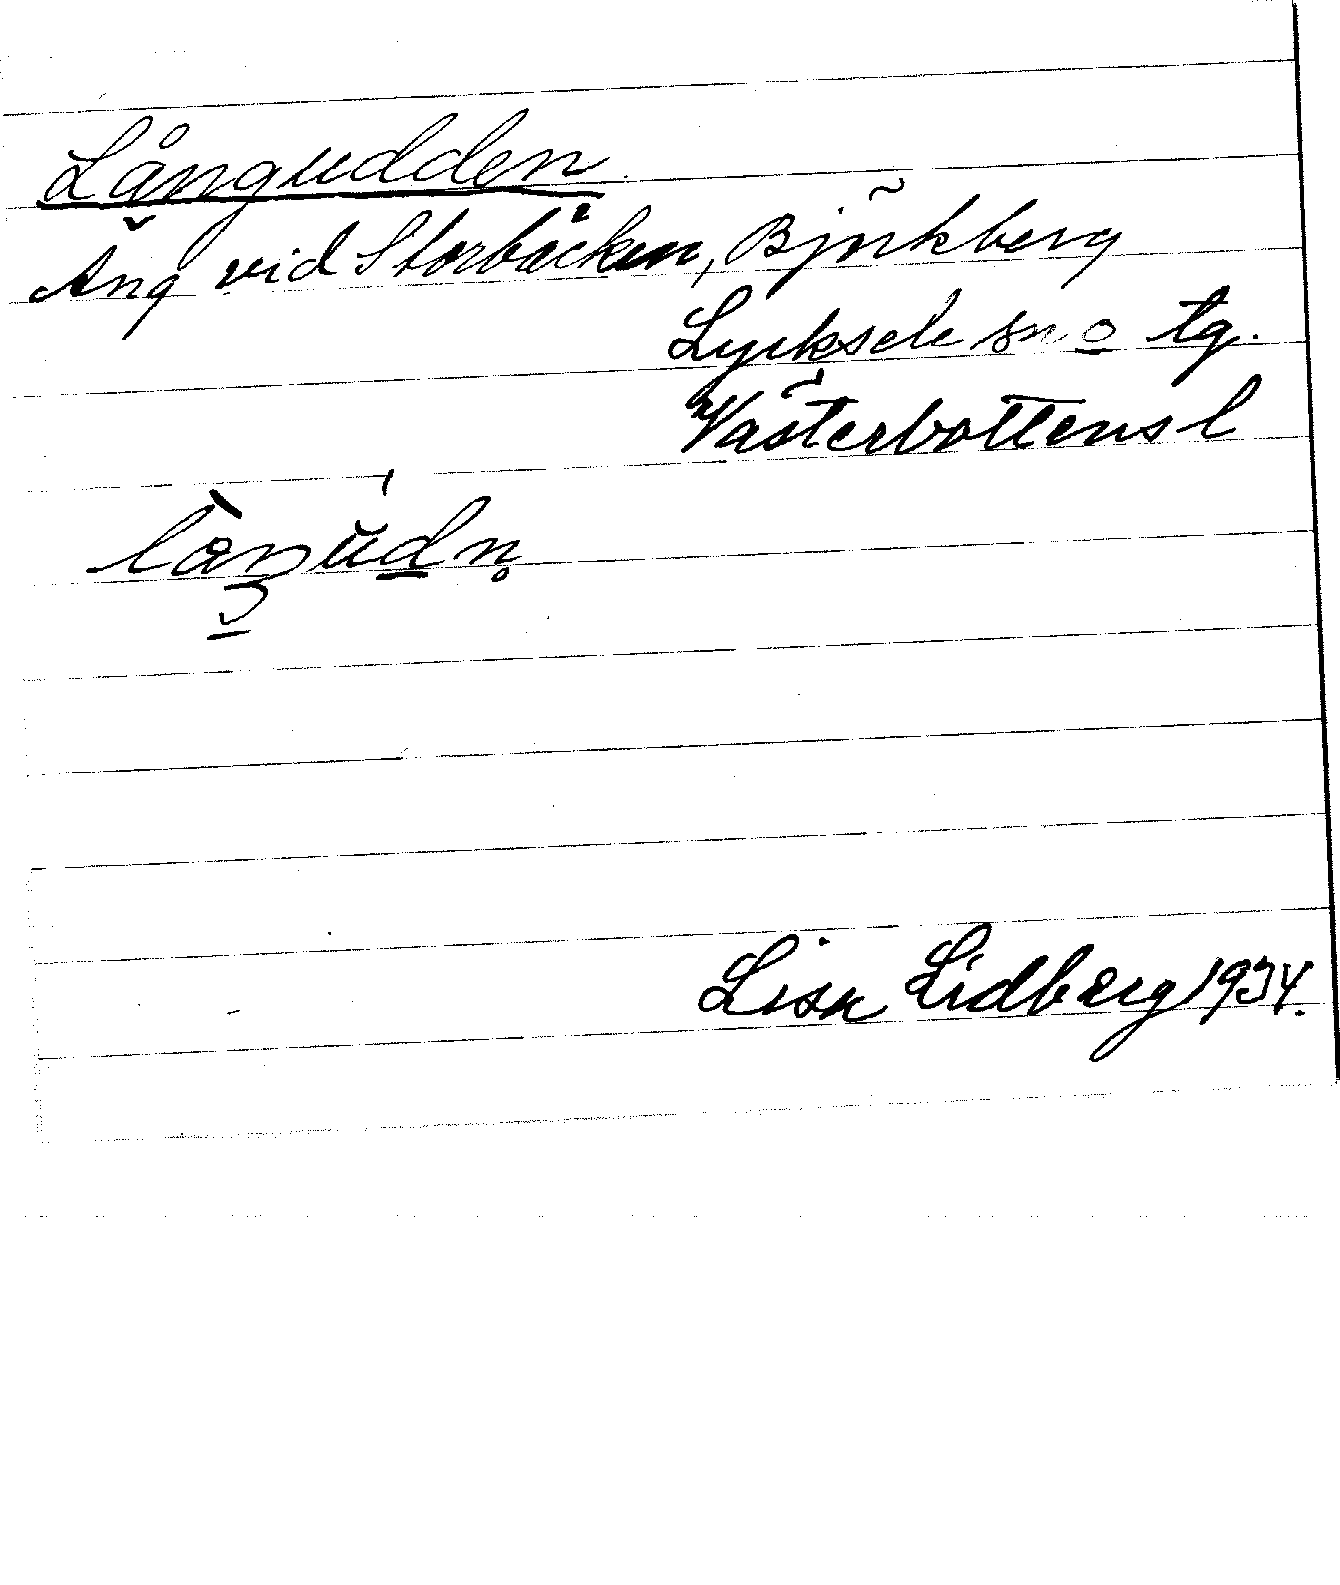 Långudden
Äng vid Storbäcken, Björkberg
Lycksele sn o tg.
Västerbottens l
Lisa Lidberg 1934.